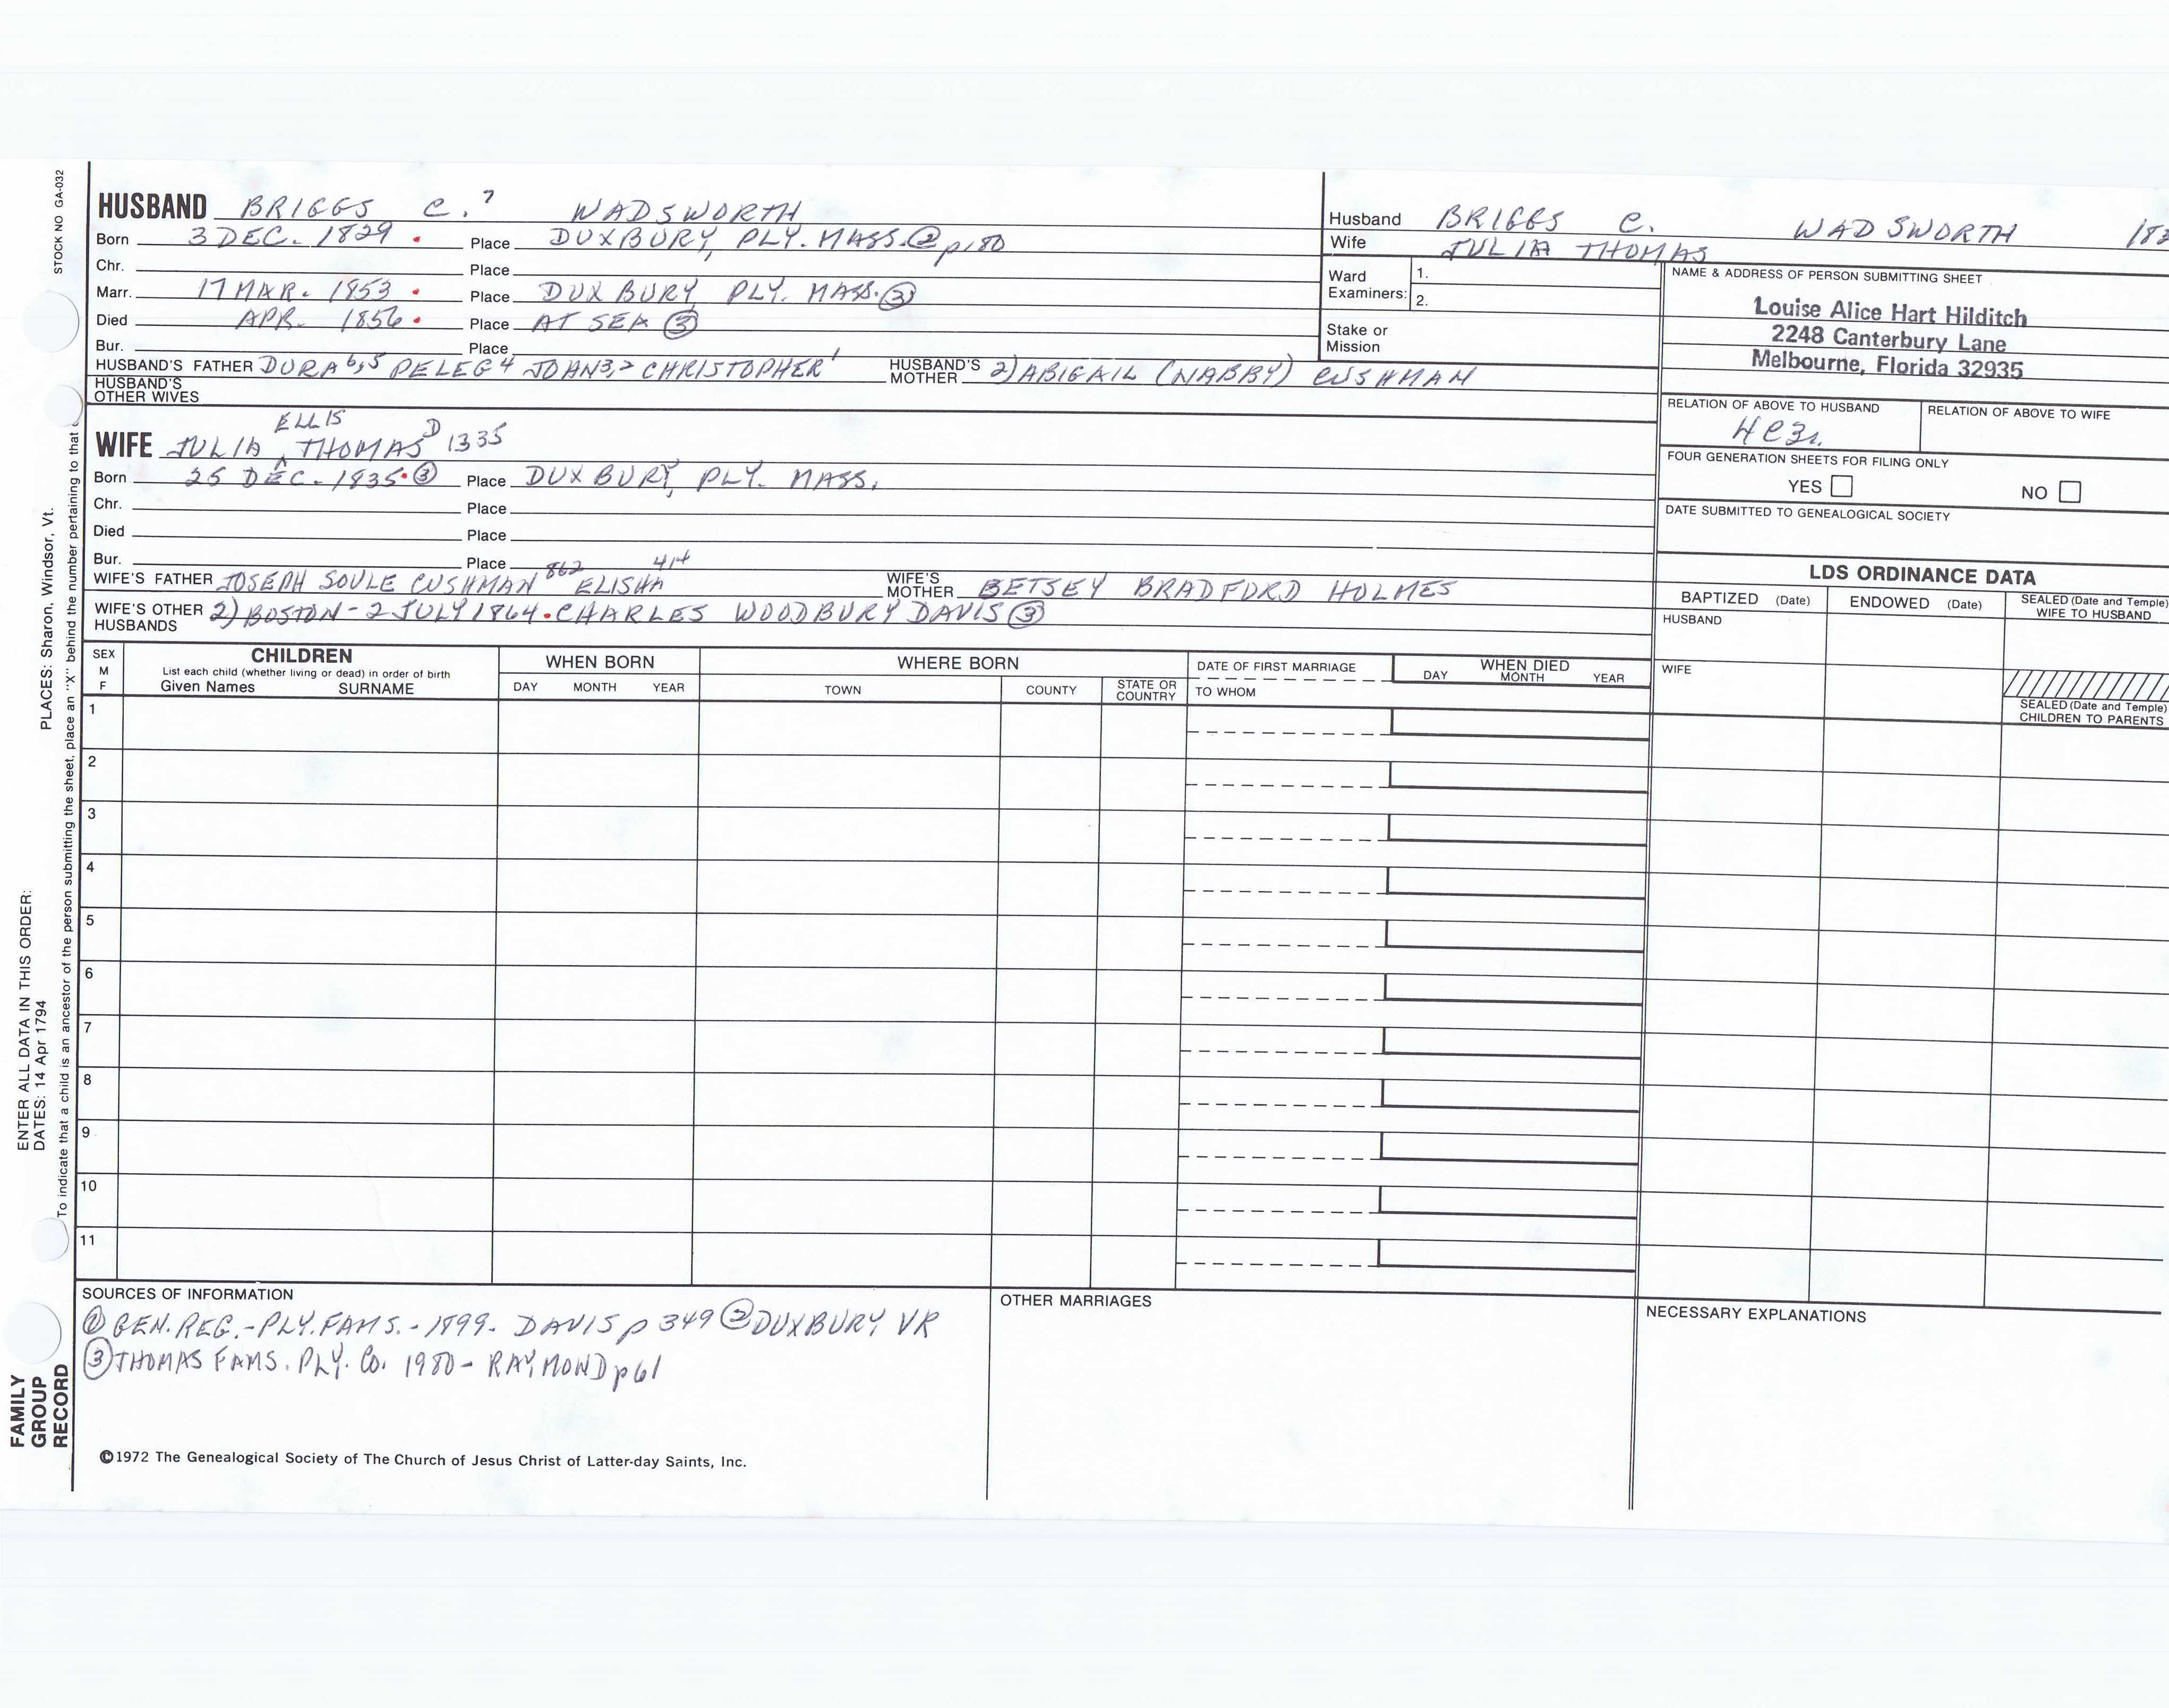 HUSBAND BRIGGS C.7 WADSWORTH
Born 3 DEC. 1829 . Place DUXBURY, PLY. MASS. ② p180
Chr. Place
Marr. 17 MAR. 1853 . Place DUXBURY, PLY. MASS. ③
Died APR. 1856 . Place AT SEA ③
Bur. Place
HUSBAND'S FATHER DURA6,5 PELEG4 JOHN3,2 CHRISTOPHER1 HUSBAND'S MOTHER 2) ABIGAIL (NABBY) CUSHMAN
HUSBAND'S OTHER WIVES
ELLIS
WIFE JULIA ^ THOMAS D 1335
Born 25 DEC. 1835. ③ Place DUXBURY, PLY. MASS.
Chr. Place
Died Place
Bur. Place
WIFE'S FATHER JOSEPH SOULE CUSHMAN 862 ELISHA 414 WIFE'S MOTHER BETSEY BRADFORD HOLMES
WIFE'S OTHER HUSBANDS 2) BOSTON - 2 JULY 1864. CHARLES WOODBURY DAVIS ③
Husband BRIGGS C. WADSWORTH
Wife JULIA THOMAS
Ward Examiners: 1.
2.
Stake or Mission
NAME & ADDRESS OF PERSON SUBMITTING SHEET
Louise Alice Hart Hilditch
2248 Canterbury Lane
Melbourne, Florida 32935
RELATION OF ABOVE TO HUSBAND RELATION OF ABOVE TO WIFE
FOUR GENERATION SHEETS FOR FILING ONLY
YES NO
DATE SUBMITTED TO GENEALOGICAL SOCIETY
LDS ORDINANCE DATA
BAPTIZED (Date) ENDOWED (Date) SEALED (Date and Temple) WIFE TO HUSBAND
HUSBAND
WIFE
SEALED (Date and Temple) CHILDREN TO PARENTS
SEX M F CHILDREN WHEN BORN WHERE BORN DATE OF FIRST MARRIAGE WHEN DIED
List each child (whether living or dead) in order of birth
Given Names SURNAME DAY MONTH YEAR TOWN COUNTY STATE OR COUNTRY TO WHOM DAY MONTH YEAR
1
2
3
4
5
6
7
8
9
10
11
SOURCES OF INFORMATION
① GEN. REG. - PLY. FAMS. - 1899. DAVIS p 349 ② DUXBURY VR
③ THOMAS FAMS. PLY. CO. 1980 - RAYMOND p61
OTHER MARRIAGES
NECESSARY EXPLANATIONS
©1972 The Genealogical Society of The Church of Jesus Christ of Latter-day Saints, Inc.
STOCK NO GA-032
PLACES: Sharon, Windsor, Vt.
ENTER ALL DATA IN THIS ORDER:
DATES: 14 Apr 1794
To indicate that a child is an ancestor of the person submitting the sheet, place an "X" behind the number pertaining to that
FAMILY
GROUP
RECORD